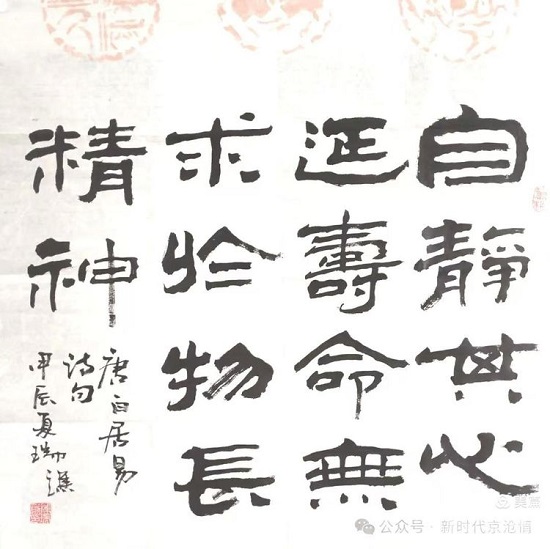 自靜其心
延壽命無
求於物長
精神
唐白居易
诗句
甲辰夏瑞
公众号·新时代京沧俑